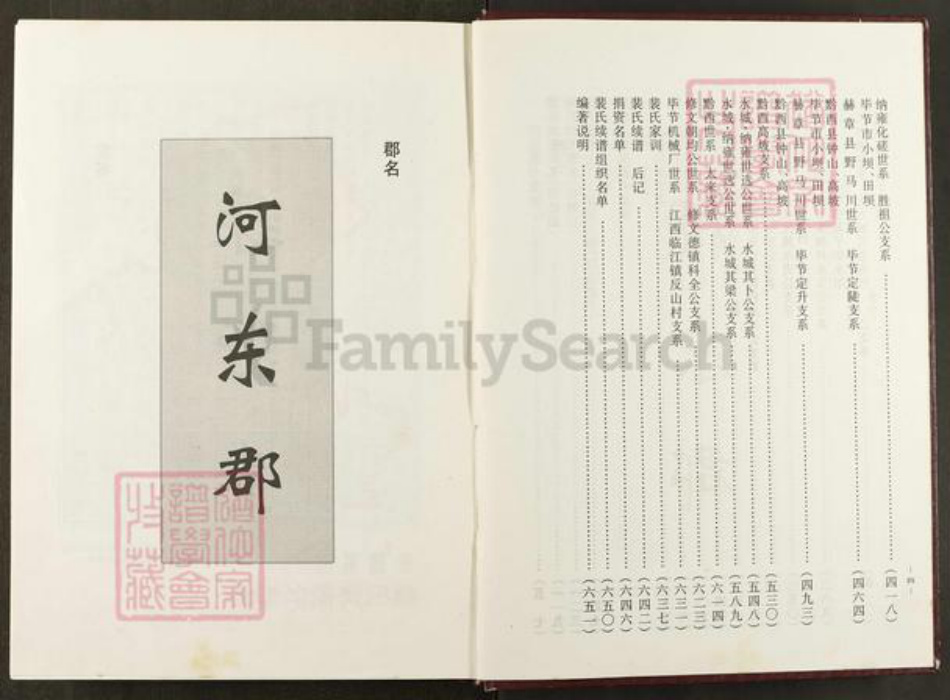 纳雍化磋世系 胜祖公支系……(四一八)
毕节市小坝、田坝
赫章县野马川世系 毕节定陡支系……(四六四)
黔西县钟山、高坡
毕节市小坝、田坝
赫章县野马川世系 毕节定升支系……(四九三)
黔西县钟山、高坡
黔西高坡支系……(五三〇)
水城·纳雍世选公世系 水城其卜公支系……(五四八)
水城·纳雍世选公世系 水城其梁公支系……(五八九)
黔西世系 太来支系……(六一四)
修文朝均公世系 修文德镇科全公支系……(六二三)
毕节机械厂世系 江西临江镇反山村支系……(六三一)
裴氏家训……(六三七)
裴氏续谱 后记……(六四二)
捐资名单……(六四六)
裴氏续谱组织名单……(六五〇)
编著说明……(六五一)
—四—
郡名
河东郡
FamilySearch